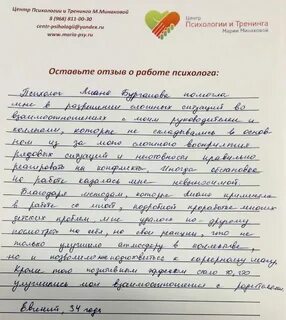 Центр Психологии и Тренинга М.Минаковой
8 (968) 811-00-30
centr-psihologii@yandex.ru
www.maria-psy.ru
Центр
Психологии и Тренинга
Марии Минаковой
Оставьте отзыв о работе психолога:
Психолог Лиана Бурганова помогла
мне в разрешении сложных ситуаций во
взаимоотношениях с моим руководителем и
коллегами, которые не складывались в основ-
ном из за моего сложного восприятия
рядовых ситуаций и неготовности правильно
реагировать на конфликты. Иногда обстановка
на работе казалась мне невыносимой.
Благодаря методам которые Лиана применила
в работе со мной, подробной проработке многих
детских проблем мне удалось по-другому
посмотреть на себя, на свои реакции, что не
только улучшило атмосферу в коллективе,
но и позволило подготовиться к карьерному шагу.
Кроме того позитивным эффектом стало то, что
улучшились мои взаимоотношения с родителями.
Евгений, 34 года